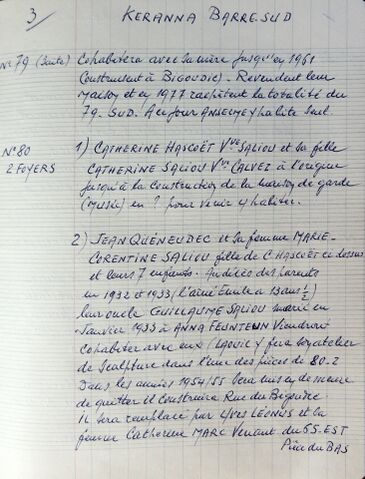 3 KERANNA BARRE-SUD
N° 79 (Suite) Cohabitera avec sa mère jusqu'en 1961
Construisent à Bigoudic). Revendent leur
maison et en 1977 rachètent la totalité du
79-SUD. A ce jour ANSELME y habite seul.
N° 80 1) CATHERINE HASCOËT Vve SALIOU et sa fille
2 FOYERS CATHERINE SALIOU Vve CALVEZ à l'origine
jusqu'à la construction de la maison de garde
(Musée) en ? pour venir y habiter.
2) JEAN QUÉNEUDEC et sa femme MARIE-
CORENTINE SALIOU fille de C HASCOËT ci dessus
et leurs 7 enfants. Au décès des parents
en 1932 et 1933 (l'aîné Emile a 13 ans ½)
leur oncle GUILLAUME SALIOU marié en
Janvier 1933 à ANNA FEUNTEUN Viendront
cohabiter avec eux. LAOUIC y fera son atelier
de sculpture dans l'une des pièces de 80-2
Dans les années 1954/55 mis en demeure
de quitter il construira Rue du Bigoudic.
IL sera remplacé par YVES LE GNOS et sa
femme Catherine MARC Venant du 65-EST
DU BAS